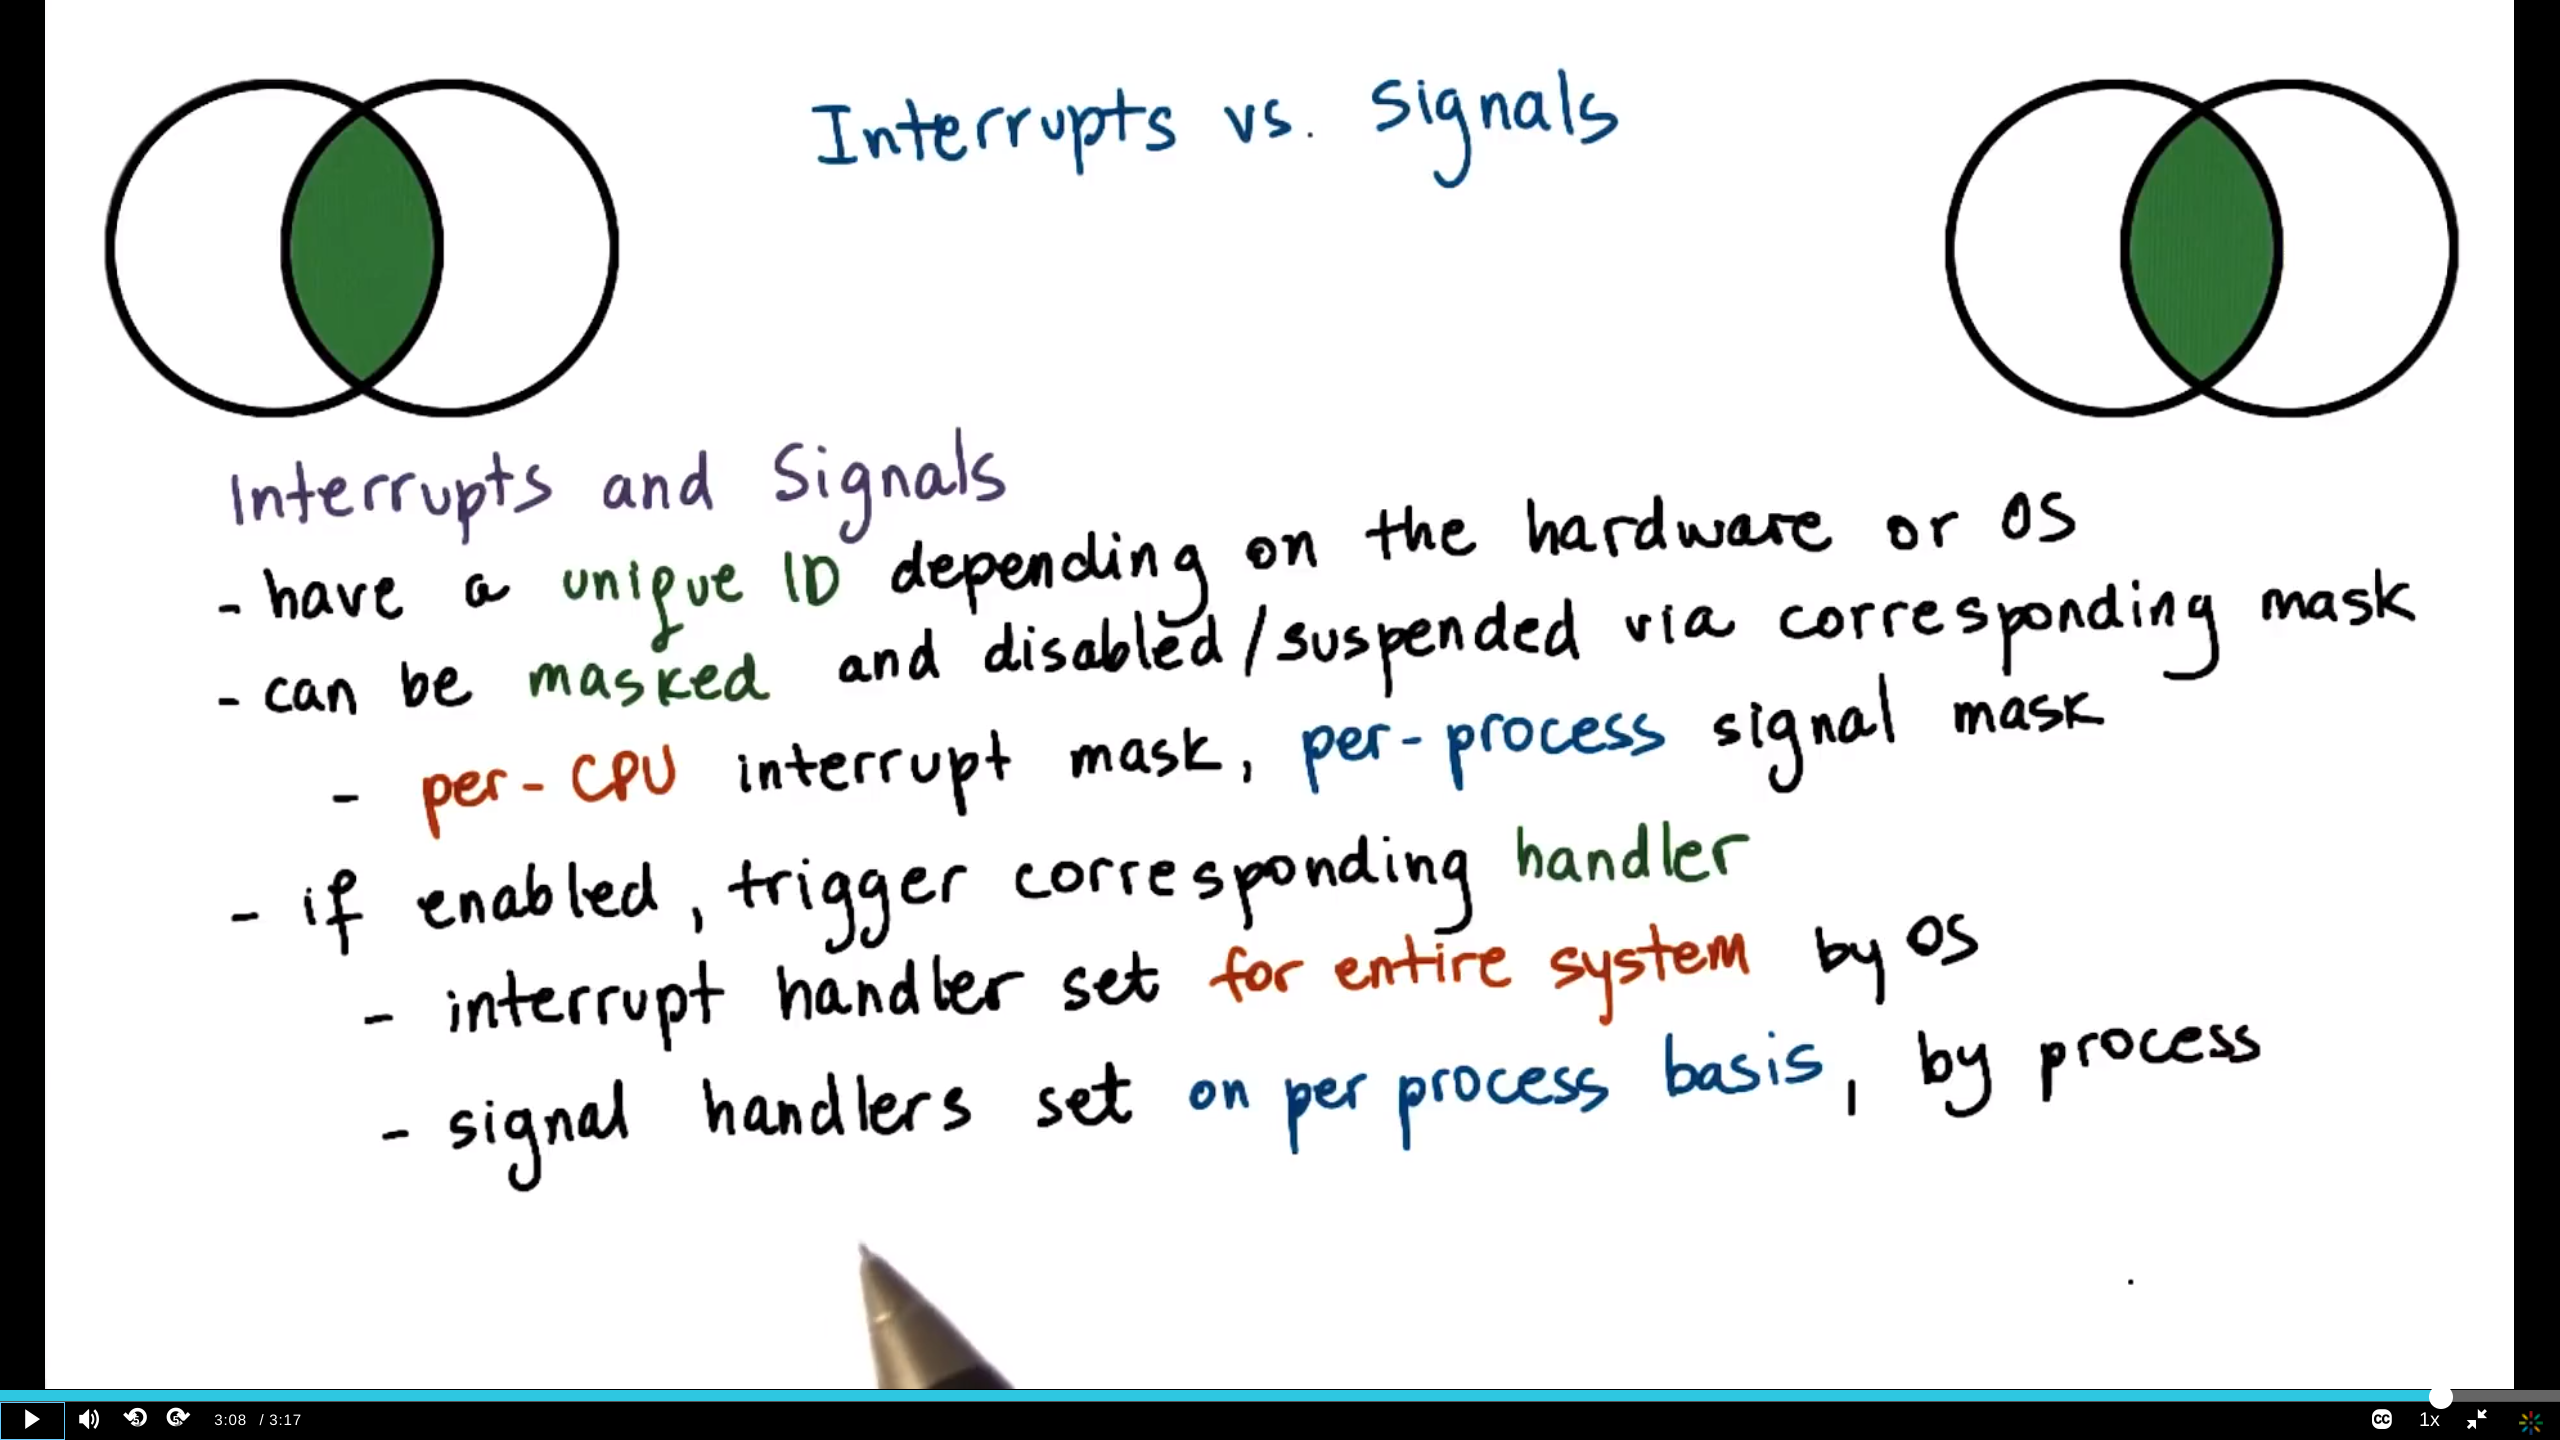 Interrupts vs. Signals
Interrupts and Signals
- have a unique ID depending on the hardware or OS
- can be masked and disabled/suspended via corresponding mask
- per-CPU interrupt mask, per-process signal mask
- if enabled, trigger corresponding handler
- interrupt handler set for entire system by OS
- signal handlers set on per process basis, by process
3:08 / 3:17
CC 1x